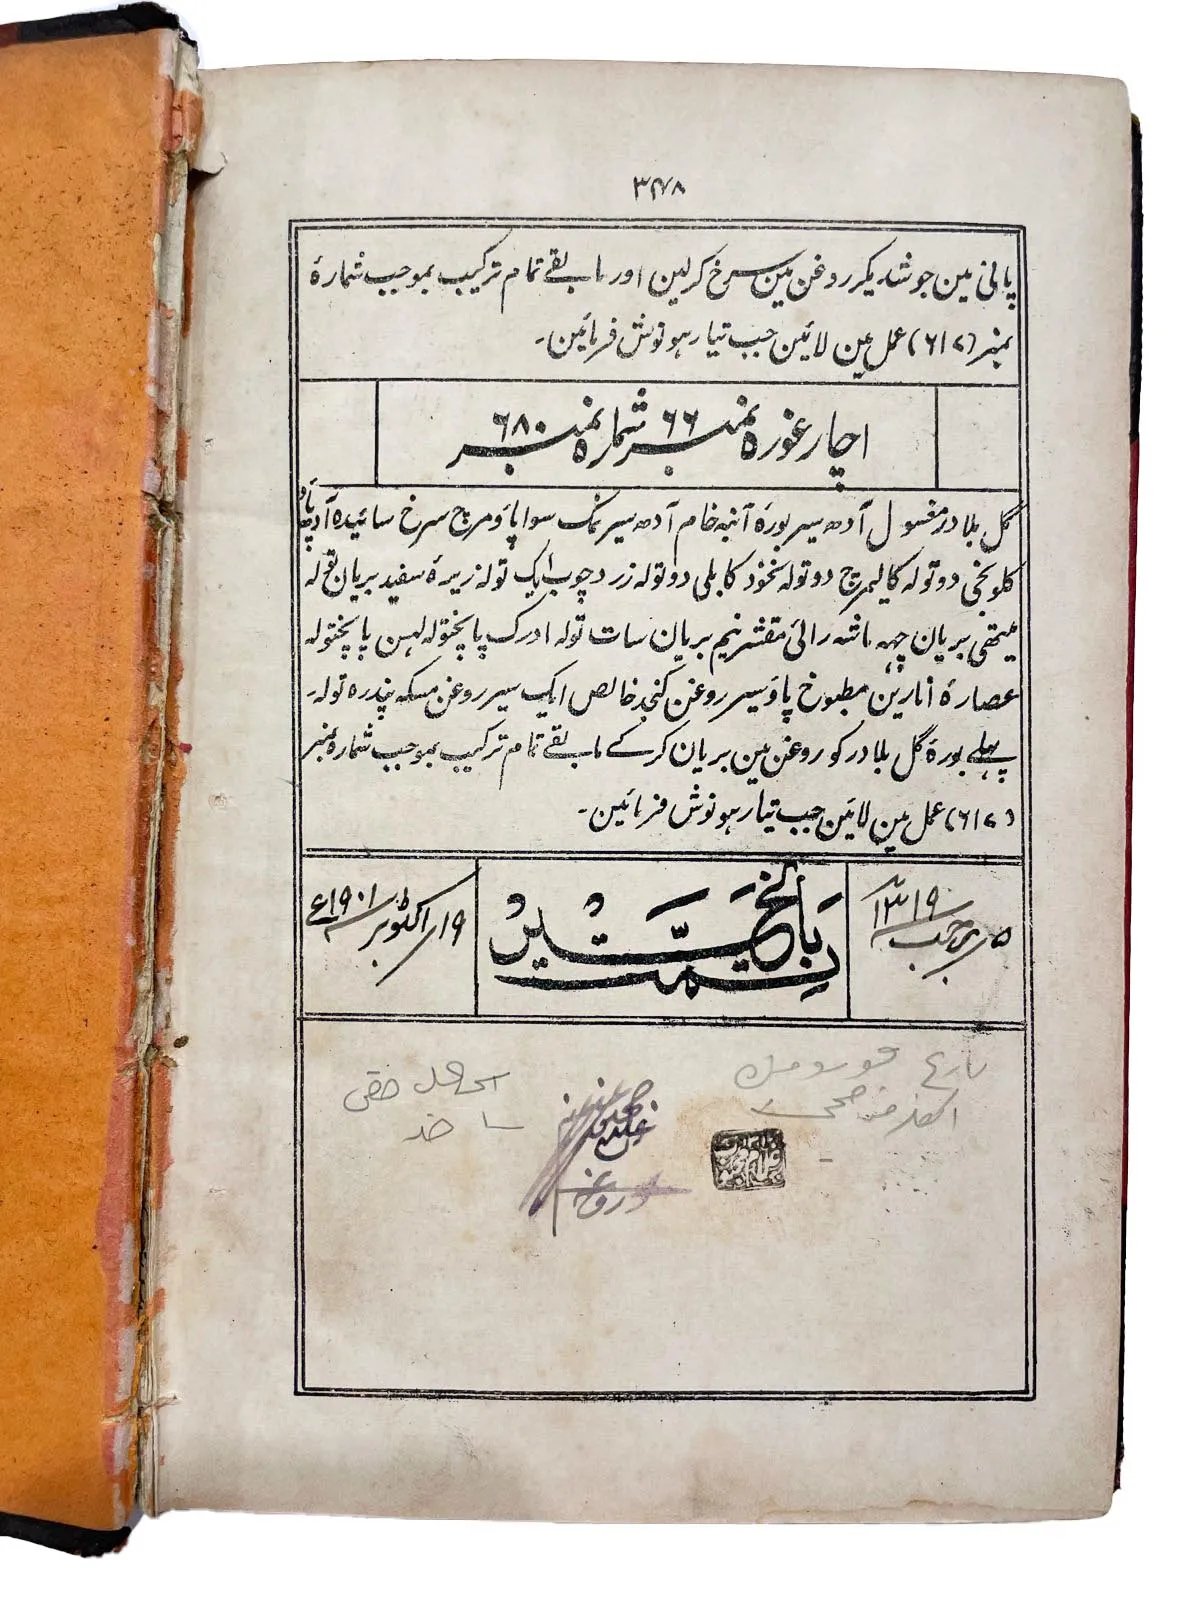 ۳۴۸
پانی مین جوشدیکر روغن مین سرخ کرلین اور مابقے تمام ترکیب بموجب شمارۂ
نمبر (۶۱۲) عمل مین لائین جب تیار ہو نوش فرمائین۔
اچار غورہ نمبر ۶۶ شمارہ نمبر ۶۸۰
گل بلادر مغسول آدھ سیر بورۂ آنبہ خام آدھ سیر نمک سوا پاؤ مرچ سرخ سائیدہ آدھ پاؤ
کلونجی دو تولہ کالیمرچ دو تولہ نخود کابلی دو تولہ زردچوب ایک تولہ زیرۂ سفید بریان تولہ
میتھی بریان چھہ ماشہ رائی مقشر نیم بریان سات تولہ ادرک پانچتولہ لہسن پانچتولہ
عصارۂ انارین مطبوخ پاؤ سیر روغن کنجد خالص ایک سیر روغن مسکہ پندرہ تولہ۔
پہلے بورۂ گل بلادر کو روغن مین بریان کرکے مابقے تمام ترکیب بموجب شمارہ نمبر
(۶۱۲) عمل مین لائین جب تیار ہو نوش فرمائین۔
۵ رجب ۱۳۱۹
تمت بالخیر
۱۹ اکتوبر ۱۹۰۱ء